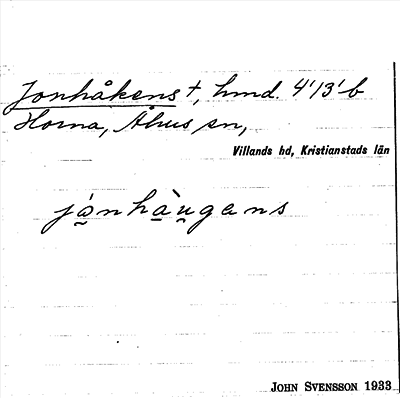 Jonhåkens +, hmd. 4'/3' b
Horna, Åhus sn,
Villands hd, Kristianstads län
jǻ̱nhà̱u̯gens
JOHN SVENSSON 1933